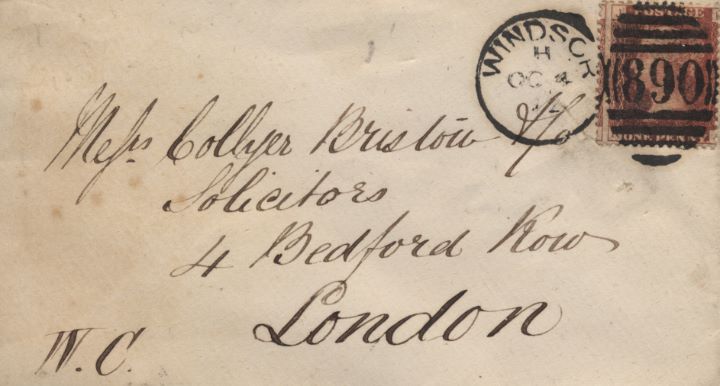 POSTAGE
ONE PENNY
WINDSOR
H
OC 4
890
Messrs Collyer Bristow & Co
Solicitors
4 Bedford Row
London
W.C.